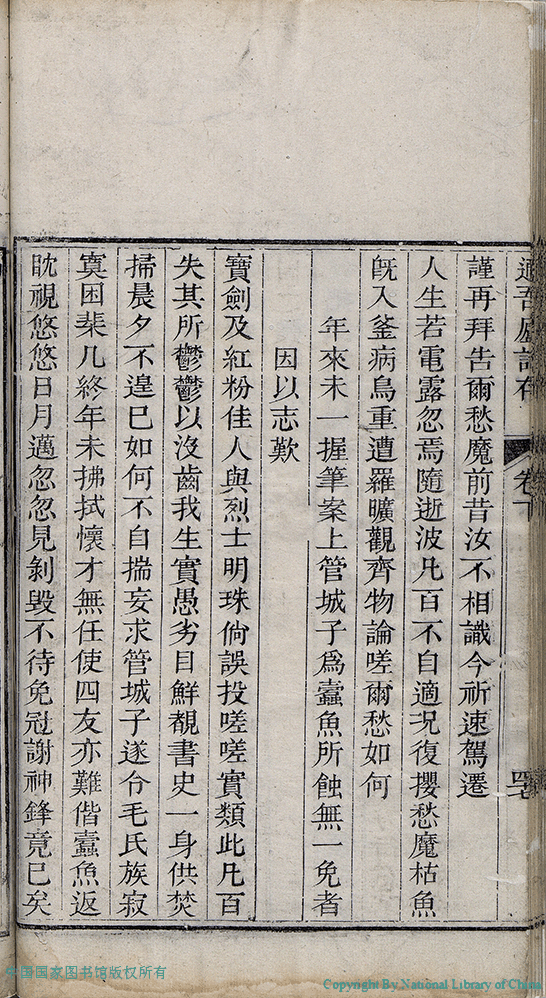 適吾廬詩存 卷下
謹再拜告爾愁魔前昔汝不相識今祈速駕遷
人生若電露忽焉隨逝波凡百不自適況復攖愁魔枯魚
旣入釜病鳥重遭羅曠觀齊物論嗟爾愁如何
年來未一握筆案上管城子爲蠹魚所蝕無一免者
因以志歎
寶劍及紅粉佳人與烈士明珠倘誤投嗟嗟實類此凡百
失其所鬱鬱以沒齒我生實愚劣目鮮覩書史一身供焚
掃晨夕不遑巳如何不自揣妄求管城子遂令毛氏族寂
寞困棐几終年未拂拭懷才無任使四友亦難偕蠹魚返
眈視悠悠日月邁忽忽見剝毀不待免冠謝神鋒竟巳矣
中国国家图书馆版权所有
Copyright By National Library of China